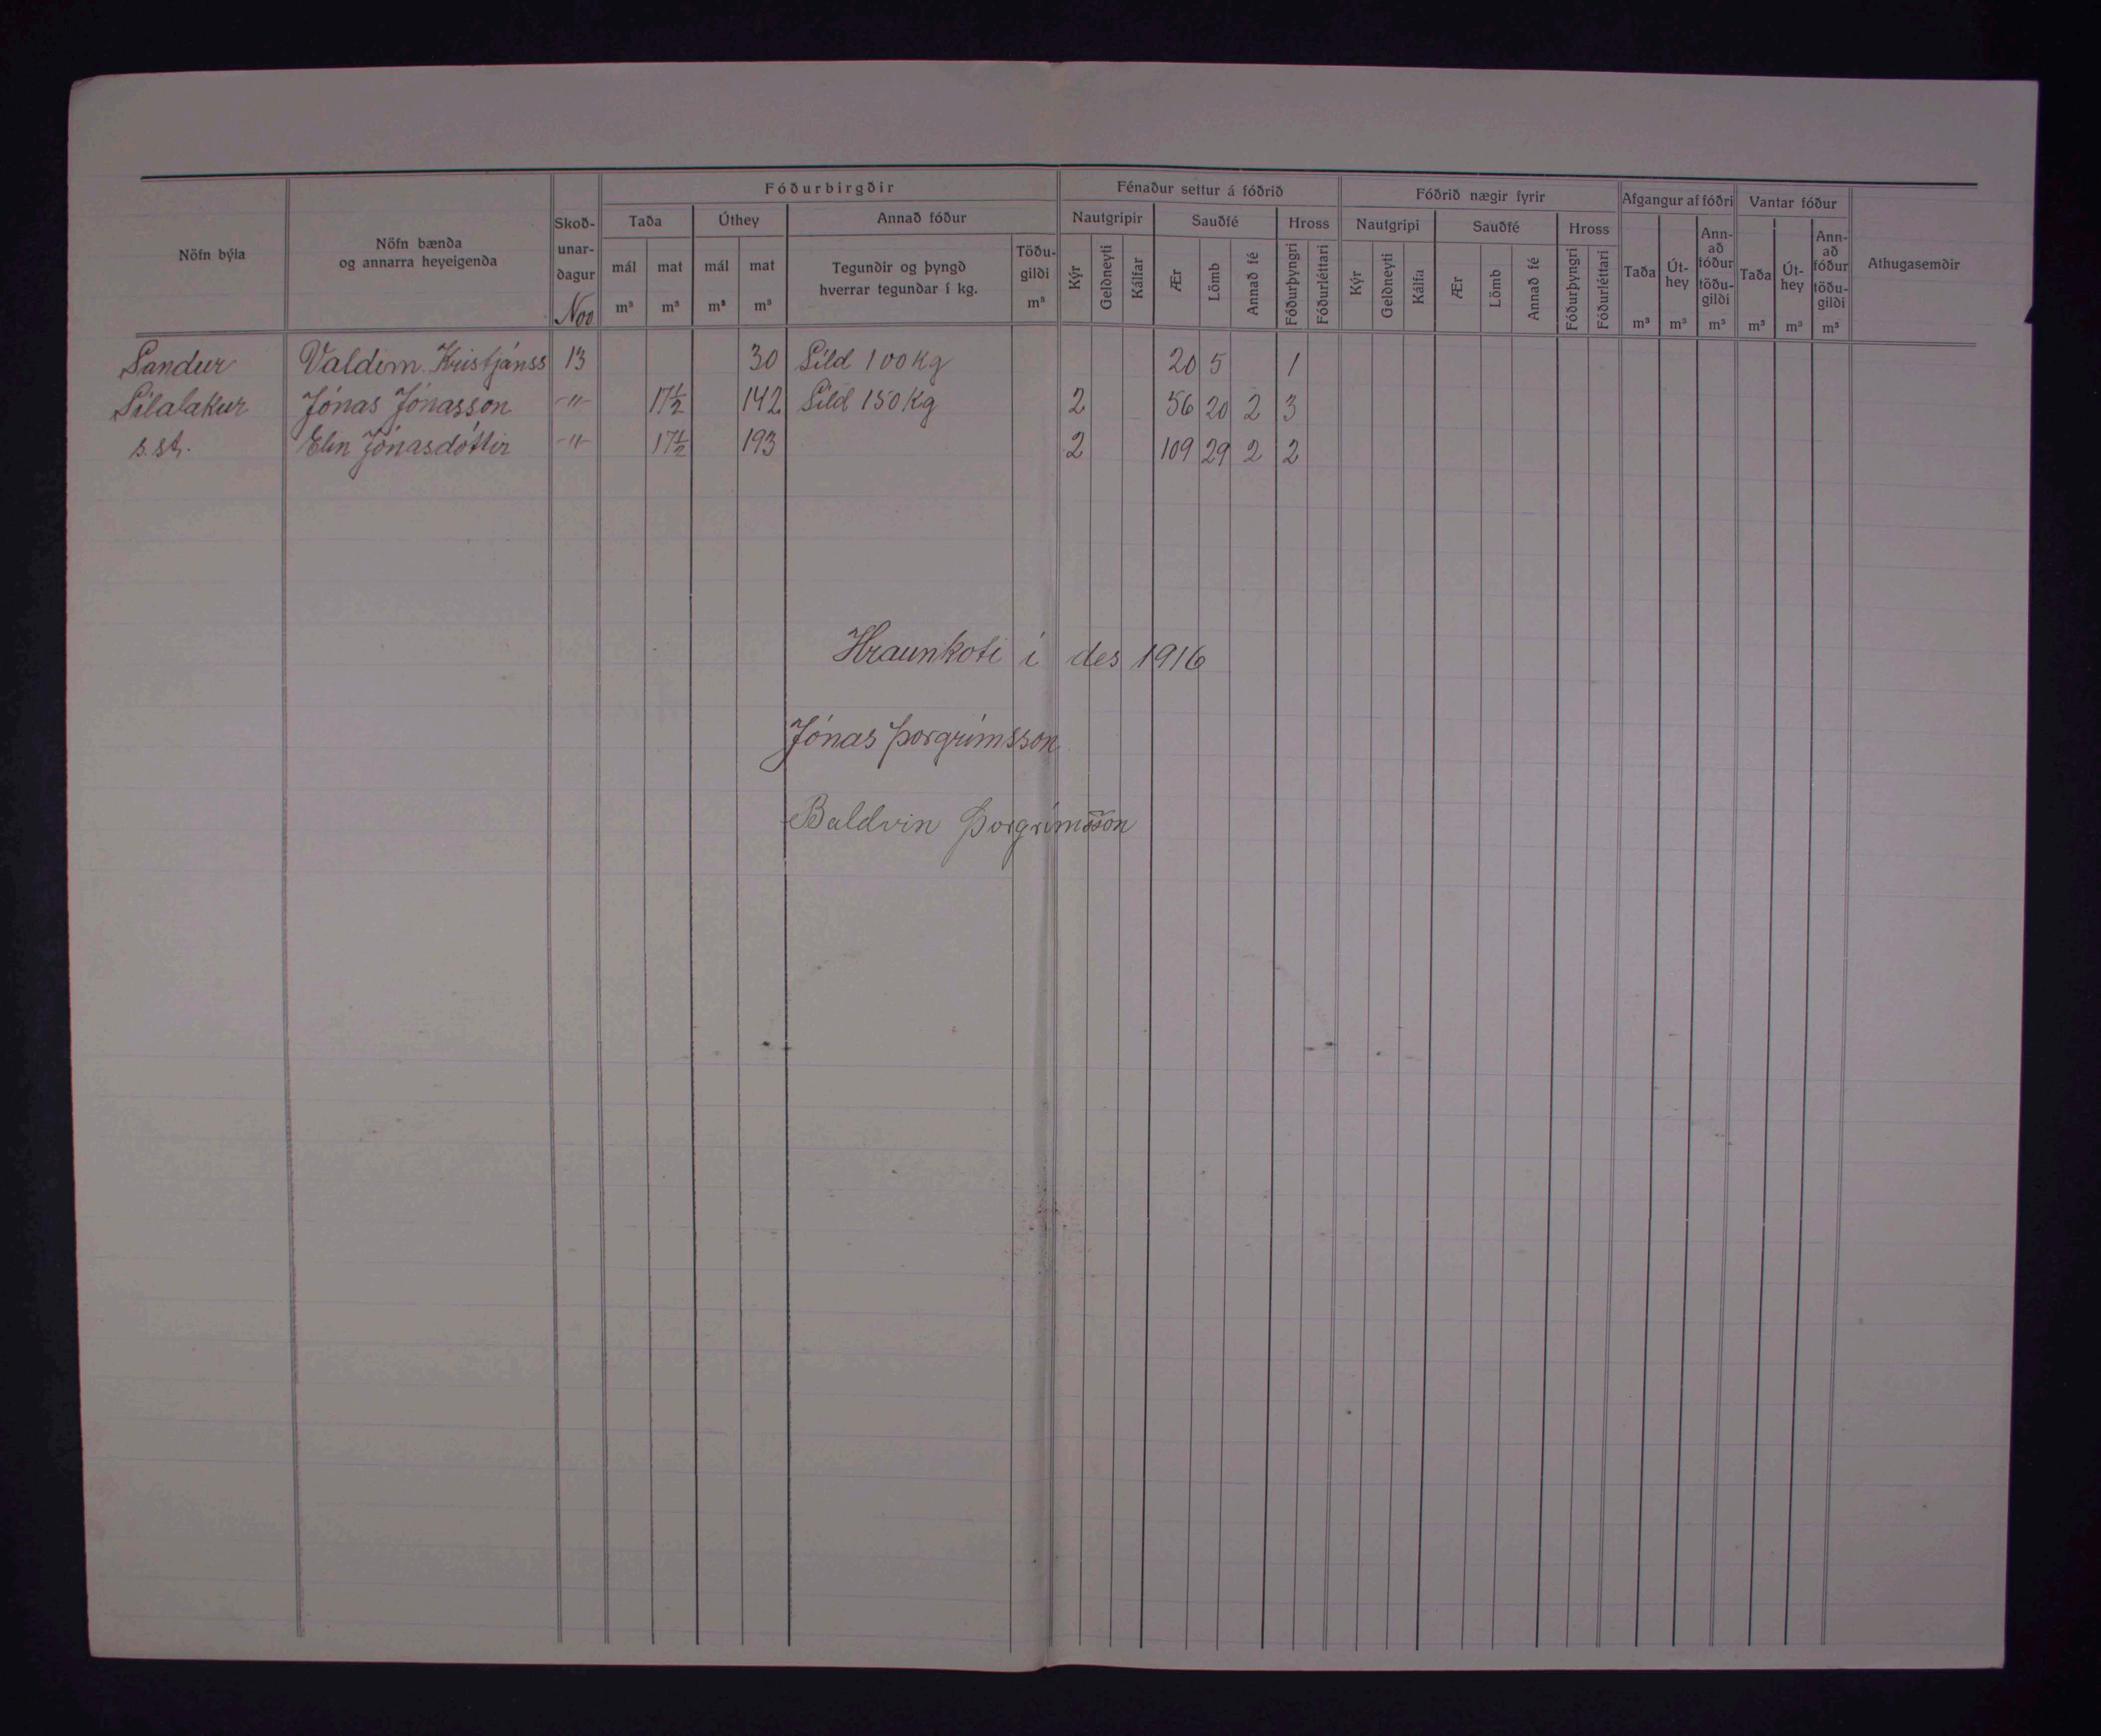 Fóðurbirgðir Fénaður settur á fóðrið Fóðrið nægir fyrir Afgangur af fóðri Vantar fóður
Nöfn býla Nöfn bænda og annarra heyeigenda Skoð-unar-dagur Nov Taða Úthey Annað fóður Nautgripir Sauðfé Hross Nautgripi Sauðfé Hross Taða Út-hey Ann-að fóður töðu-gildi Taða Út-hey Ann-að fóður töðu-gildi Athugasemdir
mál mat mál mat Tegundir og þyngd hverrar tegundar í kg. Töðu-gildi Kýr Geldneyti Kálfar Ær Lömb Annað fé Fóðurþyngri Fóðurléttari Kýr Geldneyti Kálfa Ær Lömb Annað fé Fóðurþyngri Fóðurléttari
m³ m³ m³ m³ m³ m³ m³ m³ m³ m³ m³
Sandur Valdem. Kristjánss 13 30 Síld 100 Kg 20 5 1
Sílalækur Jónas Jónasson -"- 17½ 142 Síld 150 Kg 2 56 20 2 3
s.st. Elin Jónasdóttir -"- 17½ 193 2 109 29 2 2
Hraunkoti í des 1916
Jónas Þorgrímsson
Baldvin Þorgrímsson